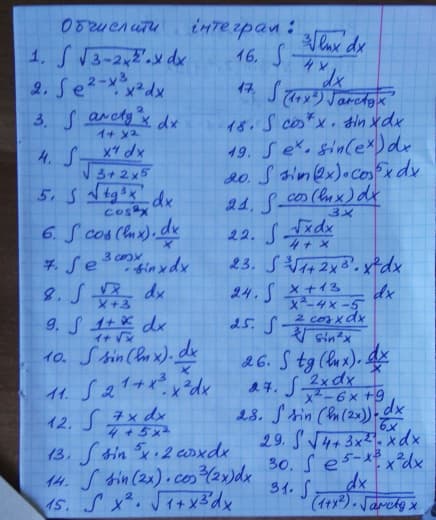 Обчислити інтеграл:
1. ∫ √(3-2x²) · x dx
2. ∫ e^(2-x³) · x² dx
3. ∫ arctg²x / (1+x²) dx
4. ∫ x⁴ dx / √(3+2x⁵)
5. ∫ √(tg³x) / cos²x dx
6. ∫ cos(lnx) · dx/x
7. ∫ e^(3cosx) · sinx dx
8. ∫ √x / (x+3) dx
9. ∫ (1+x) / (1+√x) dx
10. ∫ sin(lnx) · dx/x
11. ∫ 2^(1+x³) · x² dx
12. ∫ 7x dx / (4+5x²)
13. ∫ sin⁵x · 2cosx dx
14. ∫ sin(2x) · cos³(2x) dx
15. ∫ x² · √(1+x³) dx
16. ∫ ∛(lnx) dx / 4x
17. ∫ dx / ((1+x²)√(arctgx))
18. ∫ cos⁷x · sinx dx
19. ∫ eˣ · sin(eˣ) dx
20. ∫ sin(2x) · cos⁵x dx
21. ∫ cos(lnx) dx / 3x
22. ∫ √x dx / (4+x)
23. ∫ ∛(1+2x³) · x² dx
24. ∫ (x+13) / (x²-4x-5) dx
25. ∫ 2cosx dx / ∛(sin²x)
26. ∫ tg(lnx) · dx/x
27. ∫ 2x dx / (x²-6x+9)
28. ∫ sin(ln(2x)) · dx/6x
29. ∫ √(4+3x²) · x dx
30. ∫ e^(5-x³) · x² dx
31. ∫ dx / ((1+x²) · √(arctgx))